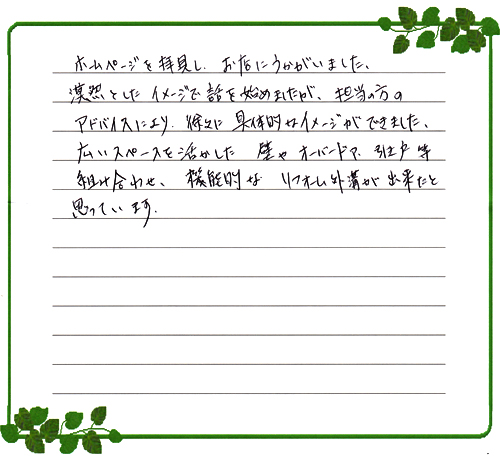 ホームページを拝見し、お店にうかがいました、
漠然とした イメージで話を始めましたが、担当の方の
アドバイスにより、徐々に具体的なイメージができました、
広いスペースを活かした 壁や オーバードア、引き戸 等
組み合わせ、機能的な リフォーム外溝が出来たと
思っています.